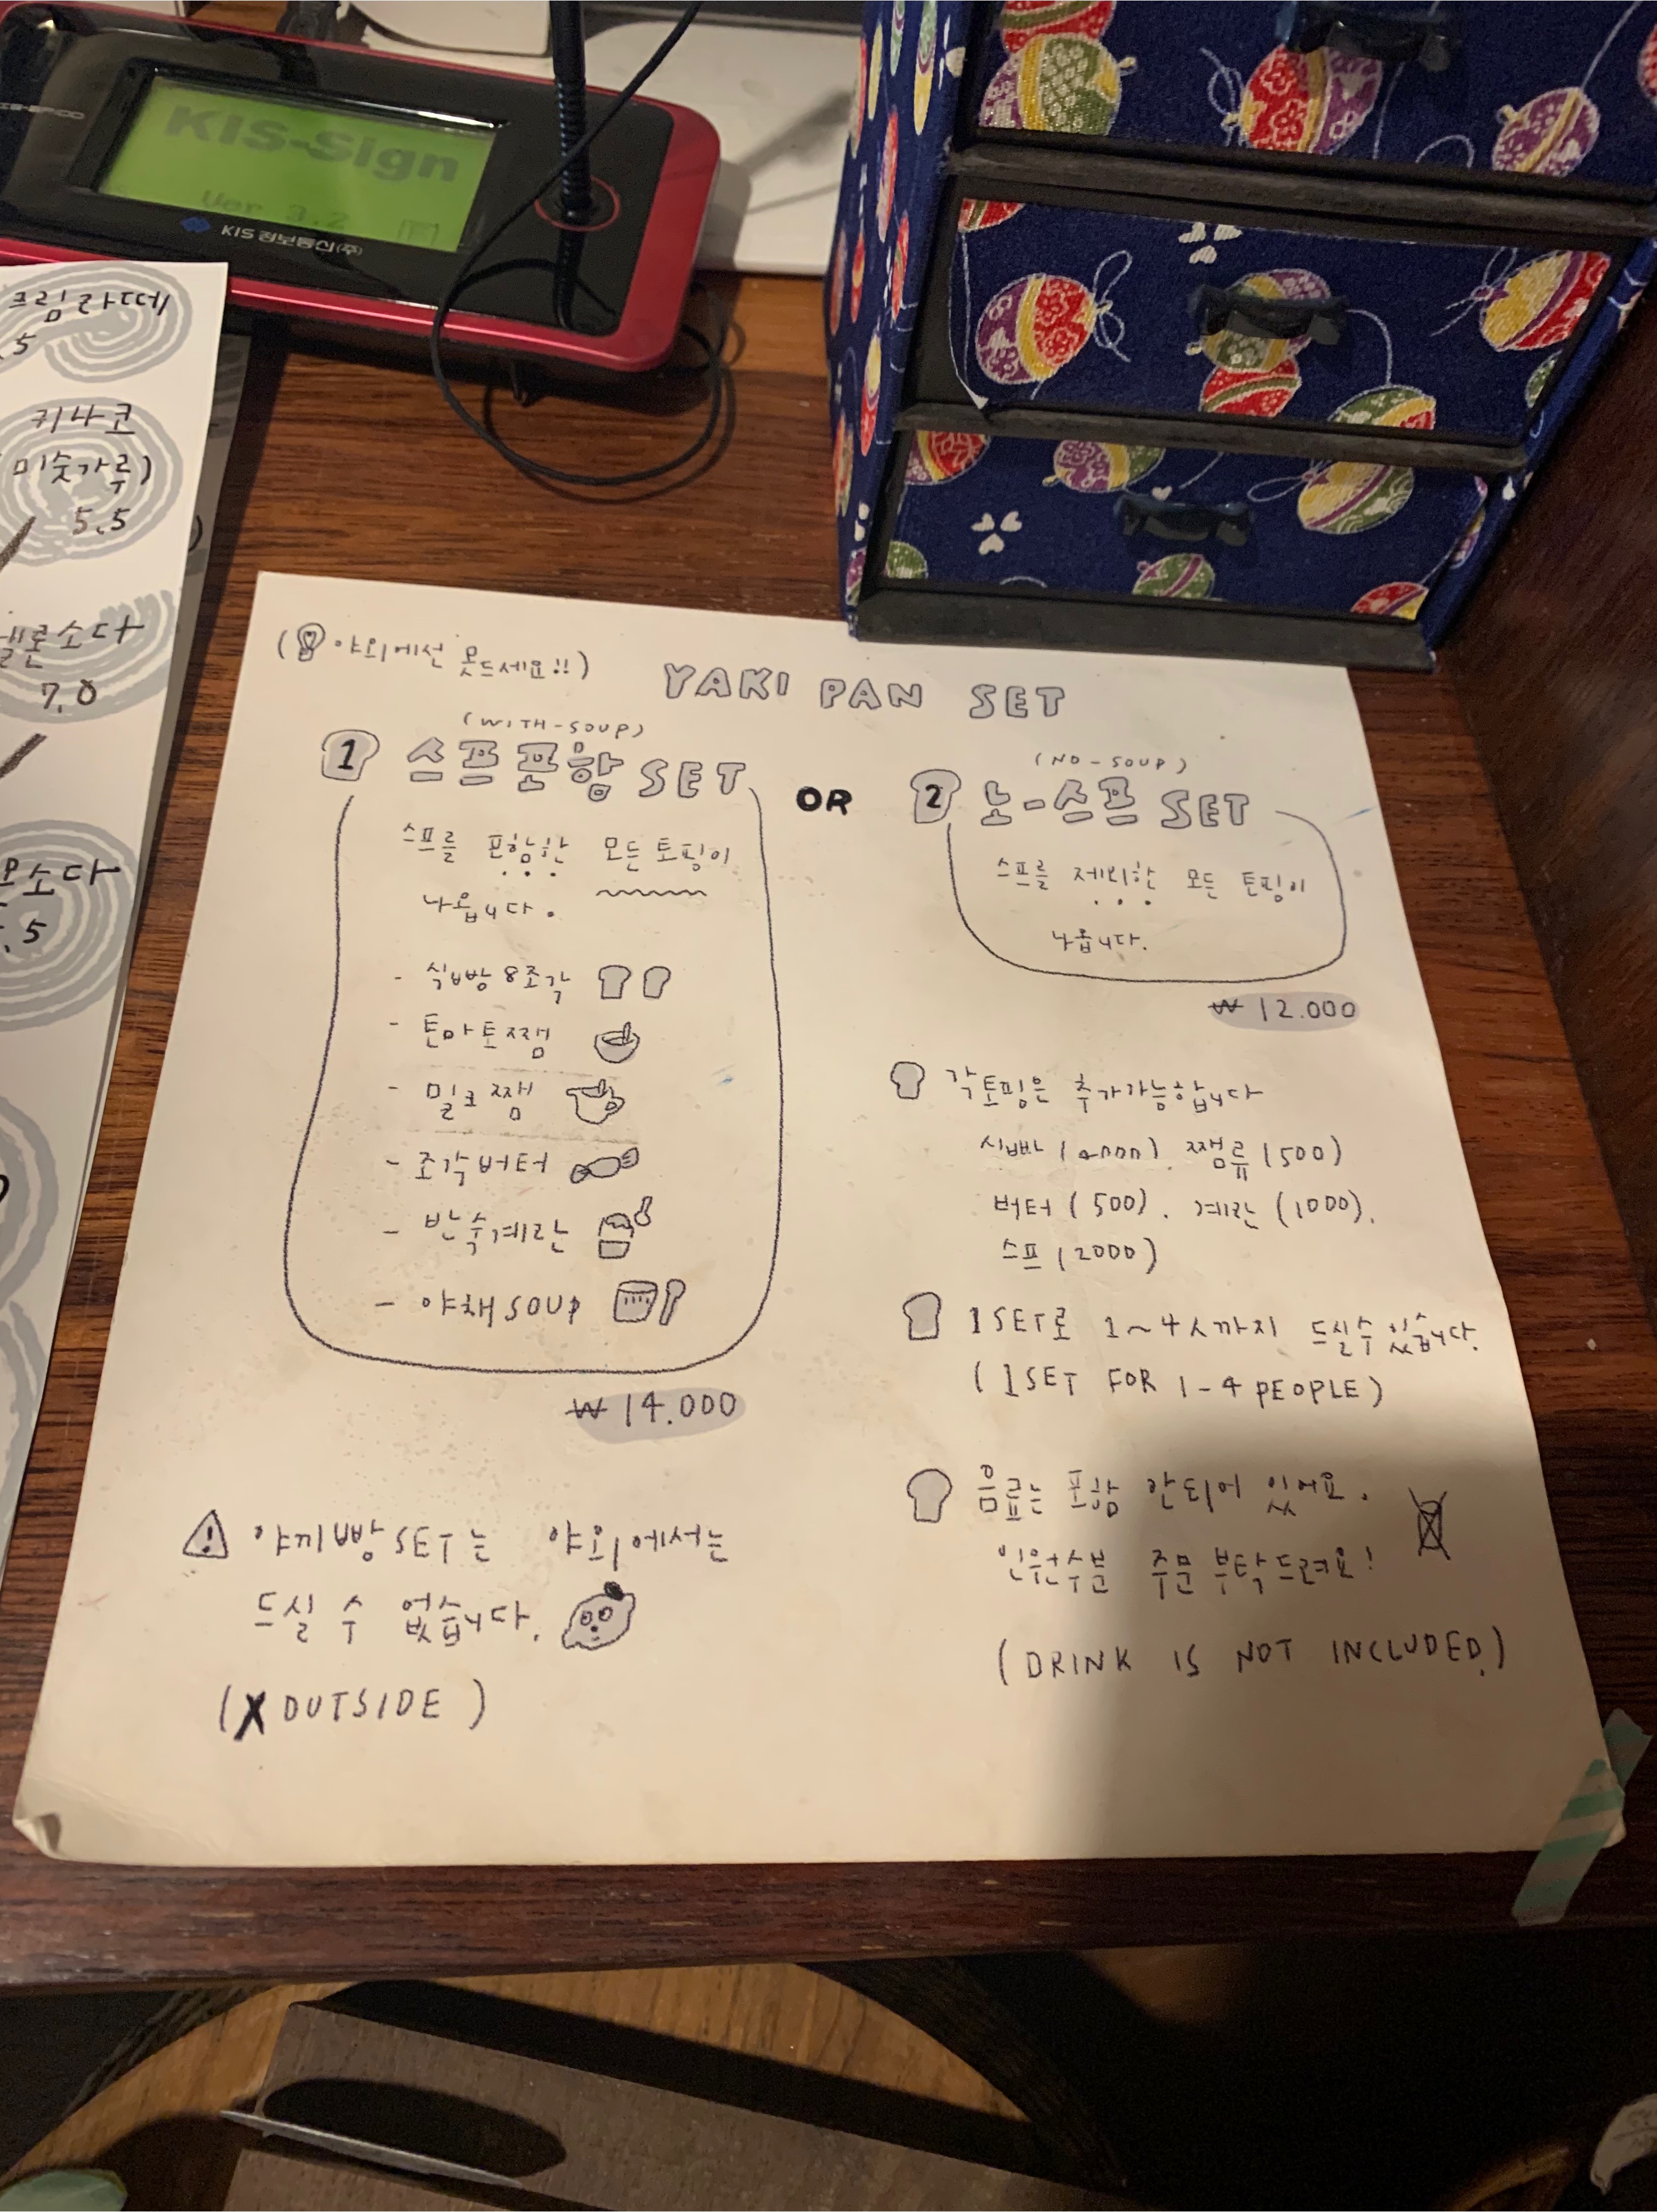 KIS-Sign
Ver 3.2
KIS 정보통신(주)
크림라떼
.5
키나코
(미숫가루)
5.5
멜론소다
7.0
소다
.5
( 야외에선 못드세요!!)
YAKI PAN SET
(WITH-SOUP)
1 스프포함 SET
스프를 포함한 모든토핑이
나옵니다.
- 식빵 8조각
- 토마토쨈
- 밀크쨈
- 조각버터
- 반숙계란
- 야채SOUP
₩ 14.000
OR
(NO-SOUP)
2 노-스프 SET
스프를 제외한 모든 토핑이
나옵니다.
₩ 12.000
각토핑은 추가가능합니다
식빵 쨈류(500)
버터(500). 계란(1000).
스프(2000)
1SET로 1~4人까지 드실수있습니다.
(1SET FOR 1-4 PEOPLE)
음료는 포함 안되어 있어요.
인원수분 주문 부탁드려요!
(DRINK IS NOT INCLUDED.)
야끼빵SET는 야외에서는
드실 수 없습니다.
(X OUTSIDE)